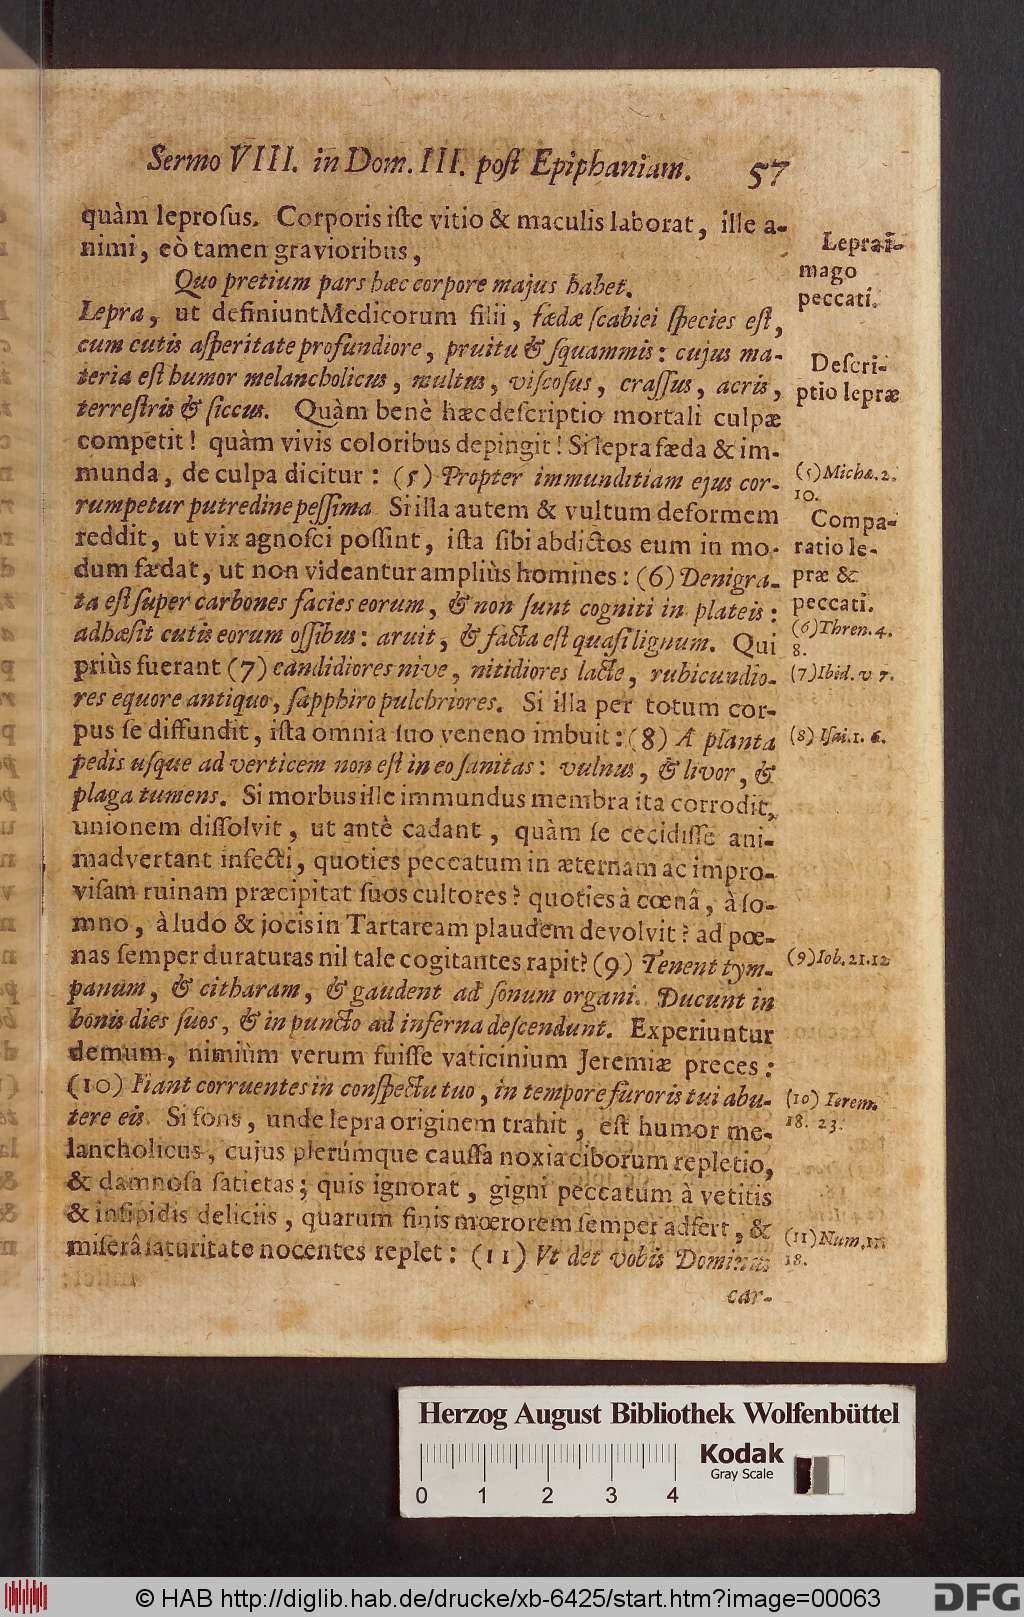 Sermo VIII. in Dom. III. poſt Epiphaniam. 57
quàm leproſus. Corporis iſte vitio & maculis laborat, ille a-
nimi, eò tamen gravioribus,
Quo pretium pars hæc corpore majus habet.
Lepra, ut definiunt Medicorum filii, fædæ ſcabiei ſpecies eſt,
cum cutis aſperitate profundiore, pruitu & ſquammis: cujus ma-
teria eſt humor melancholicus, multus, viſcoſus, craſſus, acris,
terreſtris & ſiccus. Quàm benè hæc deſcriptio mortali culpæ
competit! quàm vivis coloribus depingit! Si lepra fæda & im-
munda, de culpa dicitur: (5) Propter immunditiam ejus cor-
rumpetur putredine peſſima. Si illa autem & vultum deformem
reddit, ut vix agnoſci poſſint, iſta ſibi abdictos eum in mo-
dum fædat, ut non videantur ampliùs homines: (6) Denigra-
ta eſt ſuper carbones facies eorum, & non ſunt cogniti in plateis:
adhæſit cutis eorum oſſibus: aruit, & facta eſt quaſi lignum. Qui
priùs fuerant (7) candidiores nive, nitidiores lacte, rubicundio-
res equore antiquo, ſapphiro pulchriores. Si illa per totum cor-
pus ſe diffundit, iſta omnia ſuo veneno imbuit: (8) A planta
pedis uſque ad verticem non eſt in eo ſanitas: vulnus, & livor, &
plaga tumens. Si morbus ille immundus membra ita corrodit,
unionem diſſolvit, ut antè cadant, quàm ſe cecidiſſe ani-
madvertant infecti, quoties peccatum in æternam ac impro-
viſam ruinam præcipitat ſuos cultores? quoties à cœnâ, à ſo-
mno, à ludo & jocis in Tartaream plaudem devolvit? ad pœ-
nas ſemper duraturas nil tale cogitantes rapit? (9) Tenent tym-
panum, & citharam, & gaudent ad ſonum organi. Ducunt in
bonis dies ſuos, & in puncto ad inferna deſcendunt. Experiuntur
demum, nimiùm verum fuiſſe vaticinium Jeremiæ preces:
(10) Fiant corruentes in conſpectu tuo, in tempore furoris tui abu-
tere eis. Si fons, unde lepra originem trahit, eſt humor me-
lancholicus, cujus plerúmque cauſſa noxia ciborum repletio,
& damnoſa ſatietas; quis ignorat, gigni peccatum à vetitis
& inſipidis deliciis, quarum finis mœrorem ſemper adfert, &
miſerâ ſaturitate nocentes replet: (11) Vt det vobis Dominus
car-
Lepra i-
mago
peccati.
Deſcri-
ptio lepræ
(5) Michæ. 2.
10.
Compa-
ratio le-
præ &
peccati.
(6) Thren. 4.
8.
(7) Ibid. v 7.
(8) Iſai. 1. 6.
(9) Iob. 21. 12
(10) Ierem.
18. 23.
(11) Num. 11.
18.
Herzog August Bibliothek Wolfenbüttel
Kodak
Gray Scale
0 1 2 3 4
© HAB http://diglib.hab.de/drucke/xb-6425/start.htm?image=00063
DFG